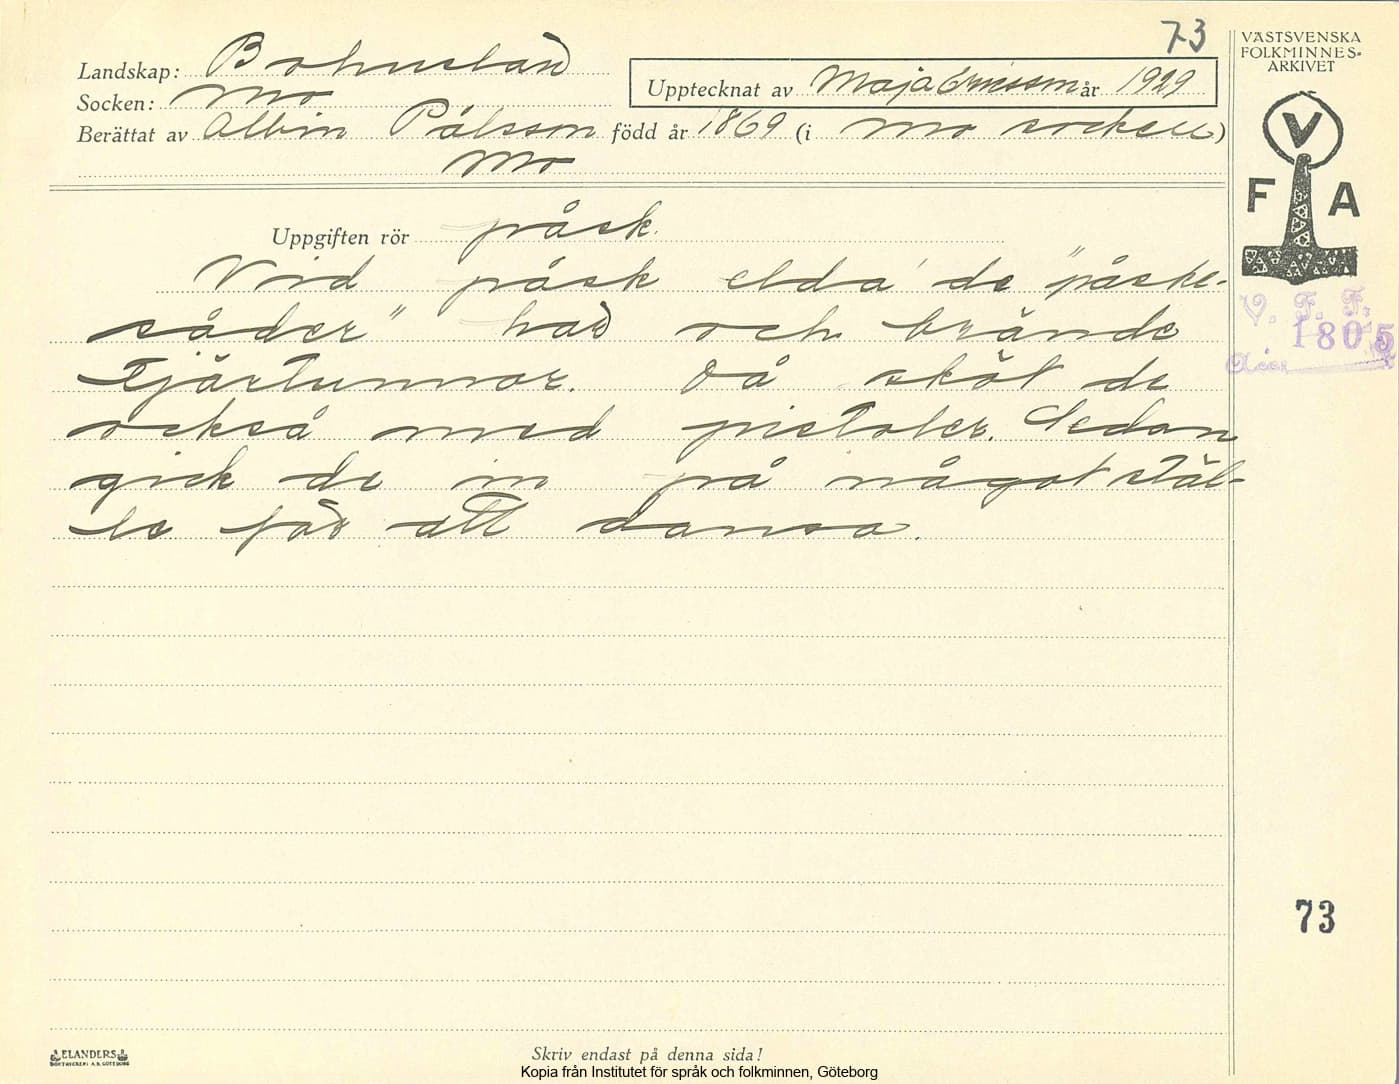 73
VÄSTSVENSKA
FOLKMINNES-
ARKIVET
Landskap: Bohuslän
Upptecknat av Maja Ericsson år 1929
Socken: Mo
Berättat av Albin Pålsson född år 1869 (i Mo socken)
Mo
V
F A
Uppgiften rör påsk.
Vid påsk elda' de "påske-
såder" här och brände
tjärtunnor. Då sköt de
också med pistoler. Sedan
gick de in på något stäl-
le för att dansa.
V. F. F.
1805
Acc.
73
ELANDERS
BOKTRYCKERI A.B. GÖTEBORG
Skriv endast på denna sida!
Kopia från Institutet för språk och folkminnen, Göteborg